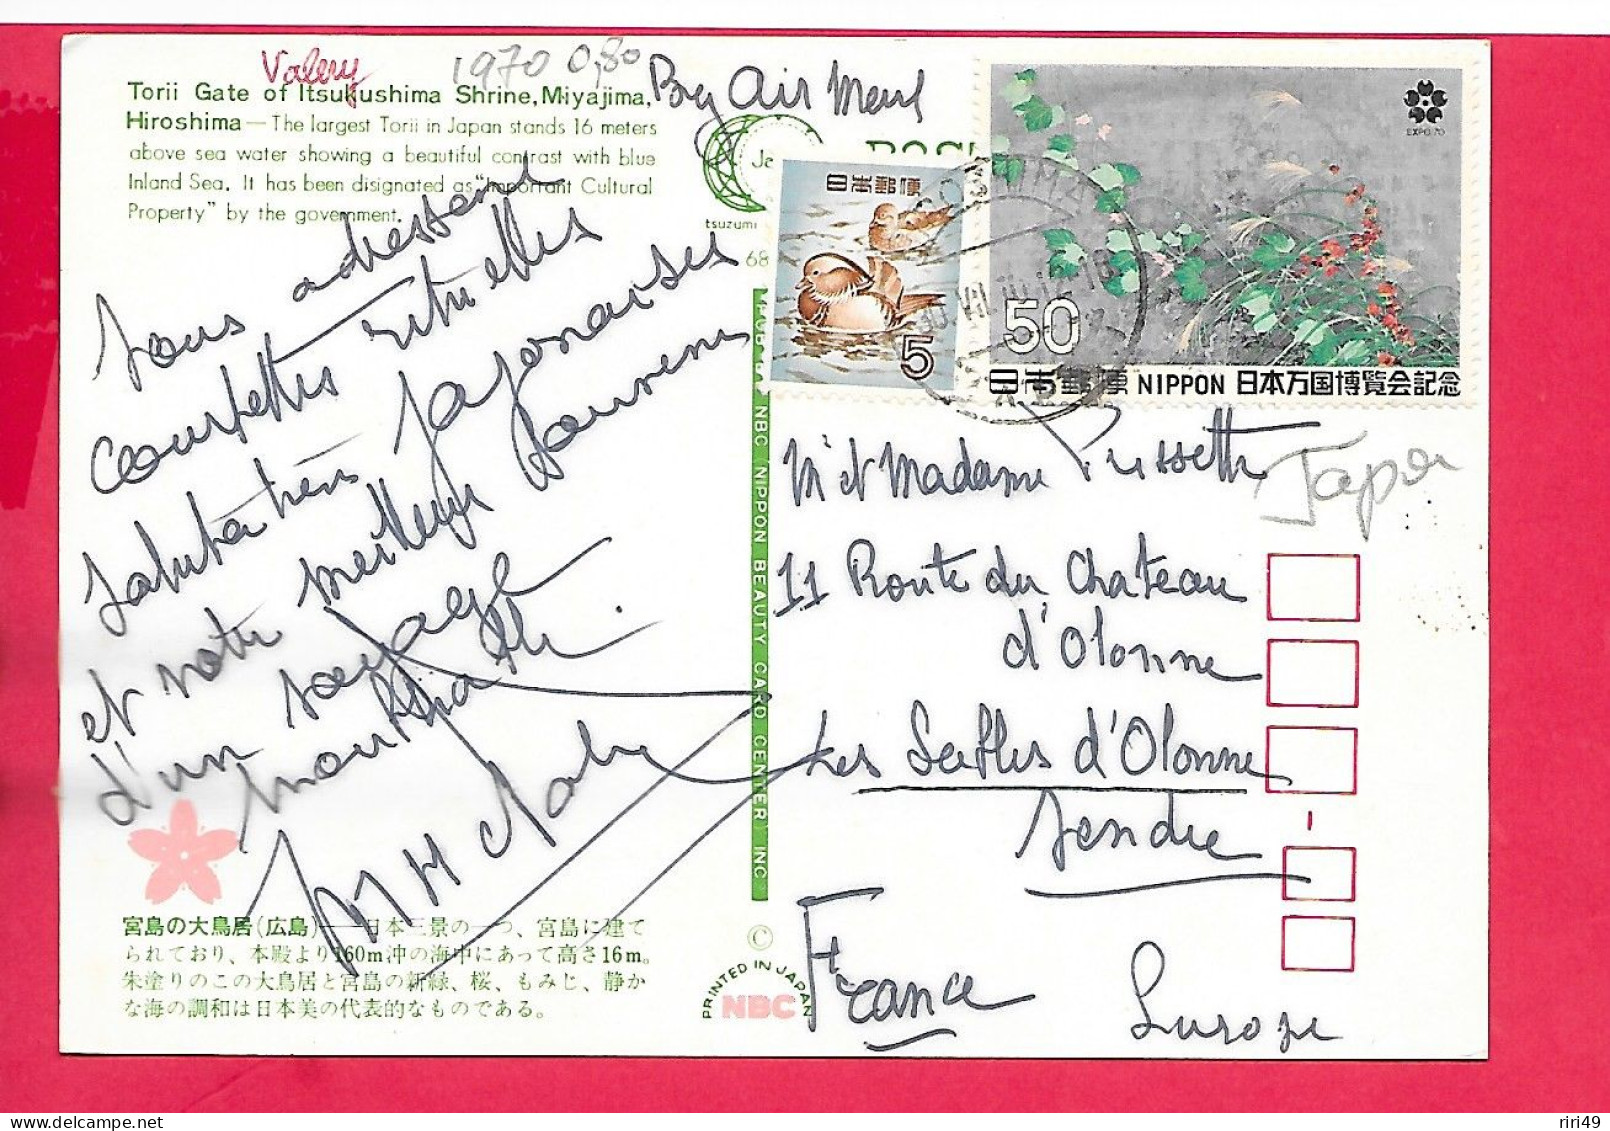 Valery
1970 0,80
By Air
Torii Gate of Itsukushima Shrine, Miyajima,
Hiroshima — The largest Torii in Japan stands 16 meters
above sea water showing a beautiful contrast with blue
Inland Sea. It has been disignated as "Important Cultural
Property" by the government.
tsuzumi
68
日本郵便
5
EXPO'70
50
日本郵便 NIPPON 日本万国博覧会記念
courbettes rituelles
salutations japonaises
et notre meilleur souvenir
d'un voyage
M et Madame
Japon
11 Route du Chateau
d'Olonne
Les Sables d'Olonne
Vendée
France
Europe
NBC NIPPON BEAUTY CARD CENTER INC
宮島の大鳥居(広島)——日本三景の一つ、宮島に建て
られており、本殿より160m沖の海中にあって高さ16m。
朱塗りのこの大鳥居と宮島の新緑、桜、もみじ、静か
な海の調和は日本美の代表的なものである。
©
PRINTED IN JAPAN
NBC
riri49